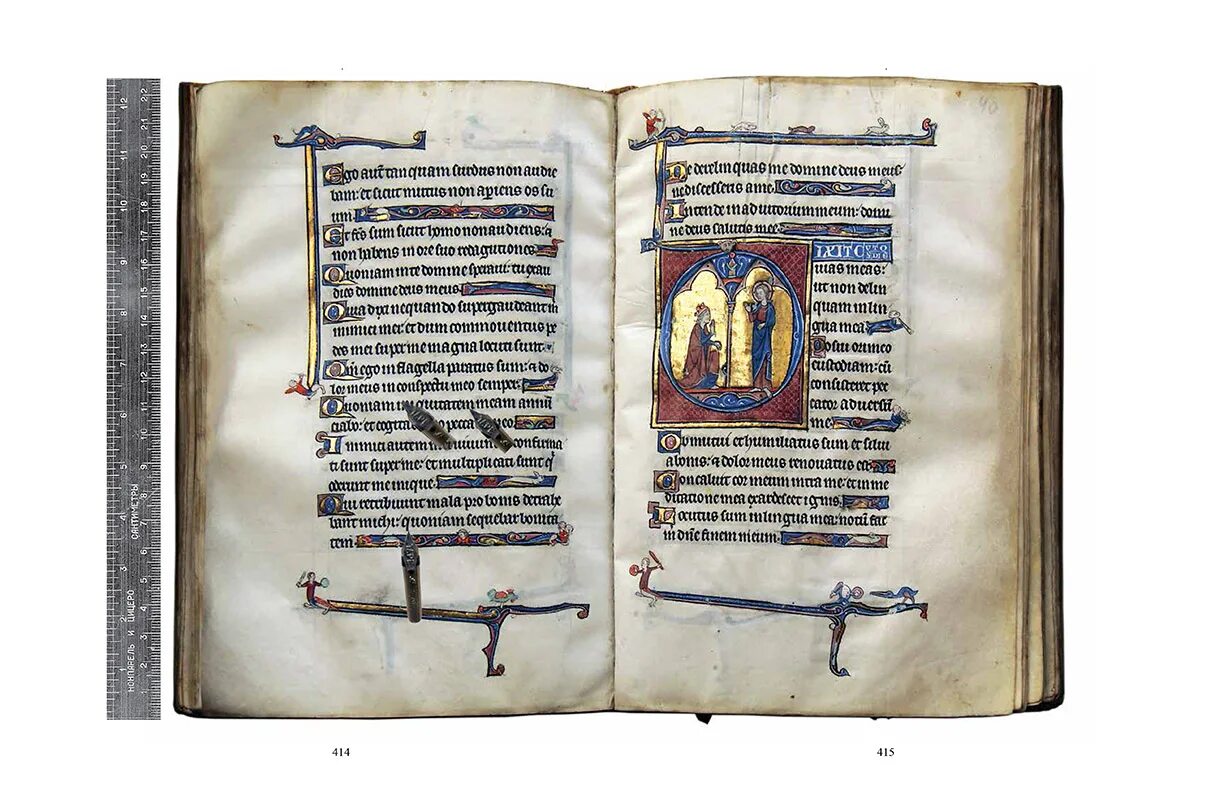 Ego aut tanquam surdus non audie
bam: et sicut mutus non apiens os su
um
Et fcs sum sicut homo non audiens: &
non habens in ore suo redagutiones
Quoniam in te domine speraui: tu exau
dies domine deus meus
Quia dixi nequando supergaudeant in
inimici mei: et dum commouentur pe
des mei super me magna locuti sunt
Qm ego in flagella paratus sum: & do
lor meus in conspectu meo semper
Quoniam iniquitatem meam annū
ciabo: et cogita pecca meo
Inimici autem uiuunt confirma
ti sunt super me: et multiplicati sunt q
oderunt me inique
Qui retribuunt mala pro bonis detrahe
bant michi: quoniam sequebar bonita
tem
Ne derelinquas me domine deus meus
ne discesseris a me
Intende in adiutorium meum: domi
ne deus salutis mee
DIXIT CUSTO
DIĀ
uias meas:
ut non delin
quam in lin
gua mea
Posui ori meo
custodiam: cū
consisteret pec
cator aduersū
me
Obmutui et humiliatus sum et silui
a bonis: & dolor meus renouatus est
Concaluit cor meum intra me: et in me
ditatione mea exardescet ignis
Locutus sum in lingua mea: notū fac
m dn̄e finem meum
40
НОНПАРЕЛЬ И ЦИЦЕРО
САНТИМЕТРЫ
414
415